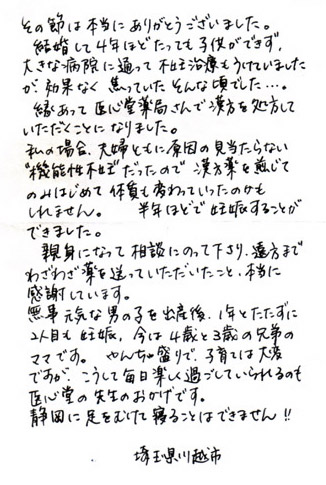 その節は本当にありがとうございました。
結婚して4年ほどたっても子供ができず、
大きな病院に通って不妊治療もうけていました
が、効果なく焦っていたそんな頃でした…。
縁あって医心堂薬局さんで漢方を処方して
いただくことになりました。
私の場合、夫婦ともに原因の見当たらない
"機能性不妊"だったので漢方薬を煎じて
のみはじめて体質も変わっていったのかも
しれません。 半年ほどで妊娠することが
できました。
親身になって相談にのって下さり、遠方まで
わざわざ薬を送っていただいたこと、本当に
感謝しています。
無事元気な男の子を出産後、1年とたたずに
2人目も妊娠、今は4歳と3歳の兄弟の
ママです。 やんちゃ盛りで、子育ては大変
ですが、こうして毎日楽しく過ごしていられるのも
医心堂の先生のおかげです。
静岡に足をむけて寝ることはできません!!
埼玉県川越市